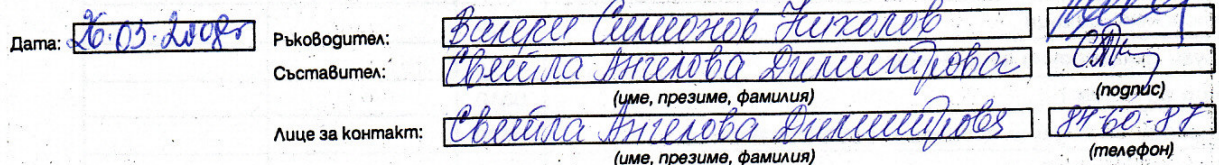 Дата: 26.03.2008г Ръководител: Валери Симеонов Николов
Съставител: Светла Ангелова Димитрова
(име, презиме, фамилия) (подпис)
Лице за контакт: Светла Ангелова Димитрова 84-60-87
(име, презиме, фамилия) (телефон)